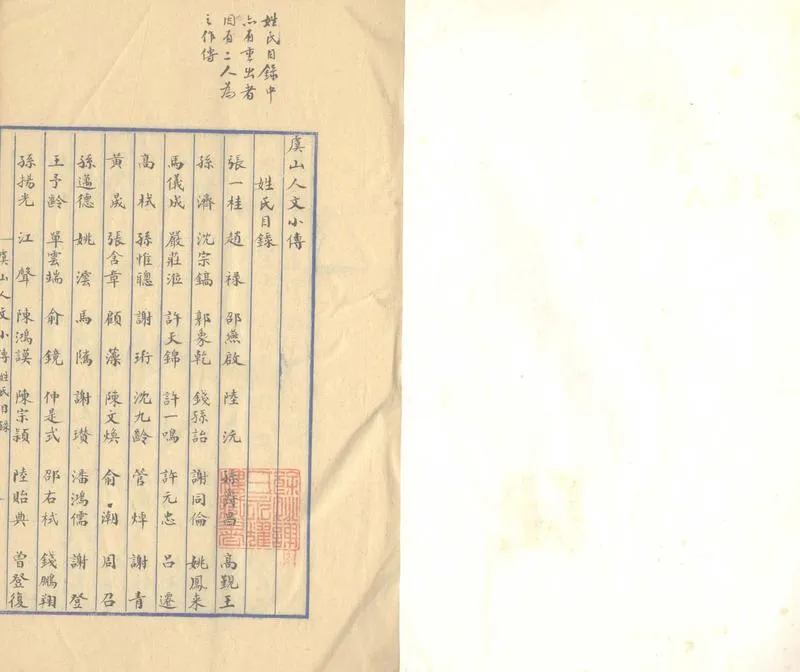 姓氏目錄中
亦有重出者
因有二人為
之作傳
虞山人文小傳
姓氏目錄
張一桂 趙祿 邵燕啟 陸沅 昌 高觀王
孫濟 沈宗鎬 郭象乾 錢孫詒 謝同倫 姚鳳來
馬儀成 嚴莊涖 許天錦 許一鳴 許元忠 呂遷
高栻 孫惟聰 謝珩 沈九齡 管焯 謝青
黃晟 張含章 顧藻 陳文煥 俞潮 周召
孫遹德 姚澐 馬隲 謝瓚 潘鴻儒 謝登
王予齡 單雲端 俞鏡 仲是式 邵右栻 錢鵬翔
孫揚光 江聲 陳鴻謨 陳宗潁 陸貽典 曾登復
虞山人文小傳 姓氏目錄